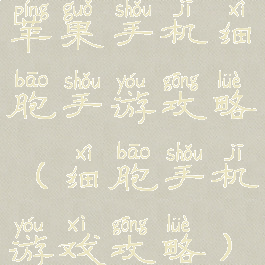 píng guǒ shǒu jī xì
苹果手机细
bāo shǒu yóu gōng lüè
胞手游攻略
xì bāo shǒu jī
（细胞手机
yóu xì gōng lüè
游戏攻略）